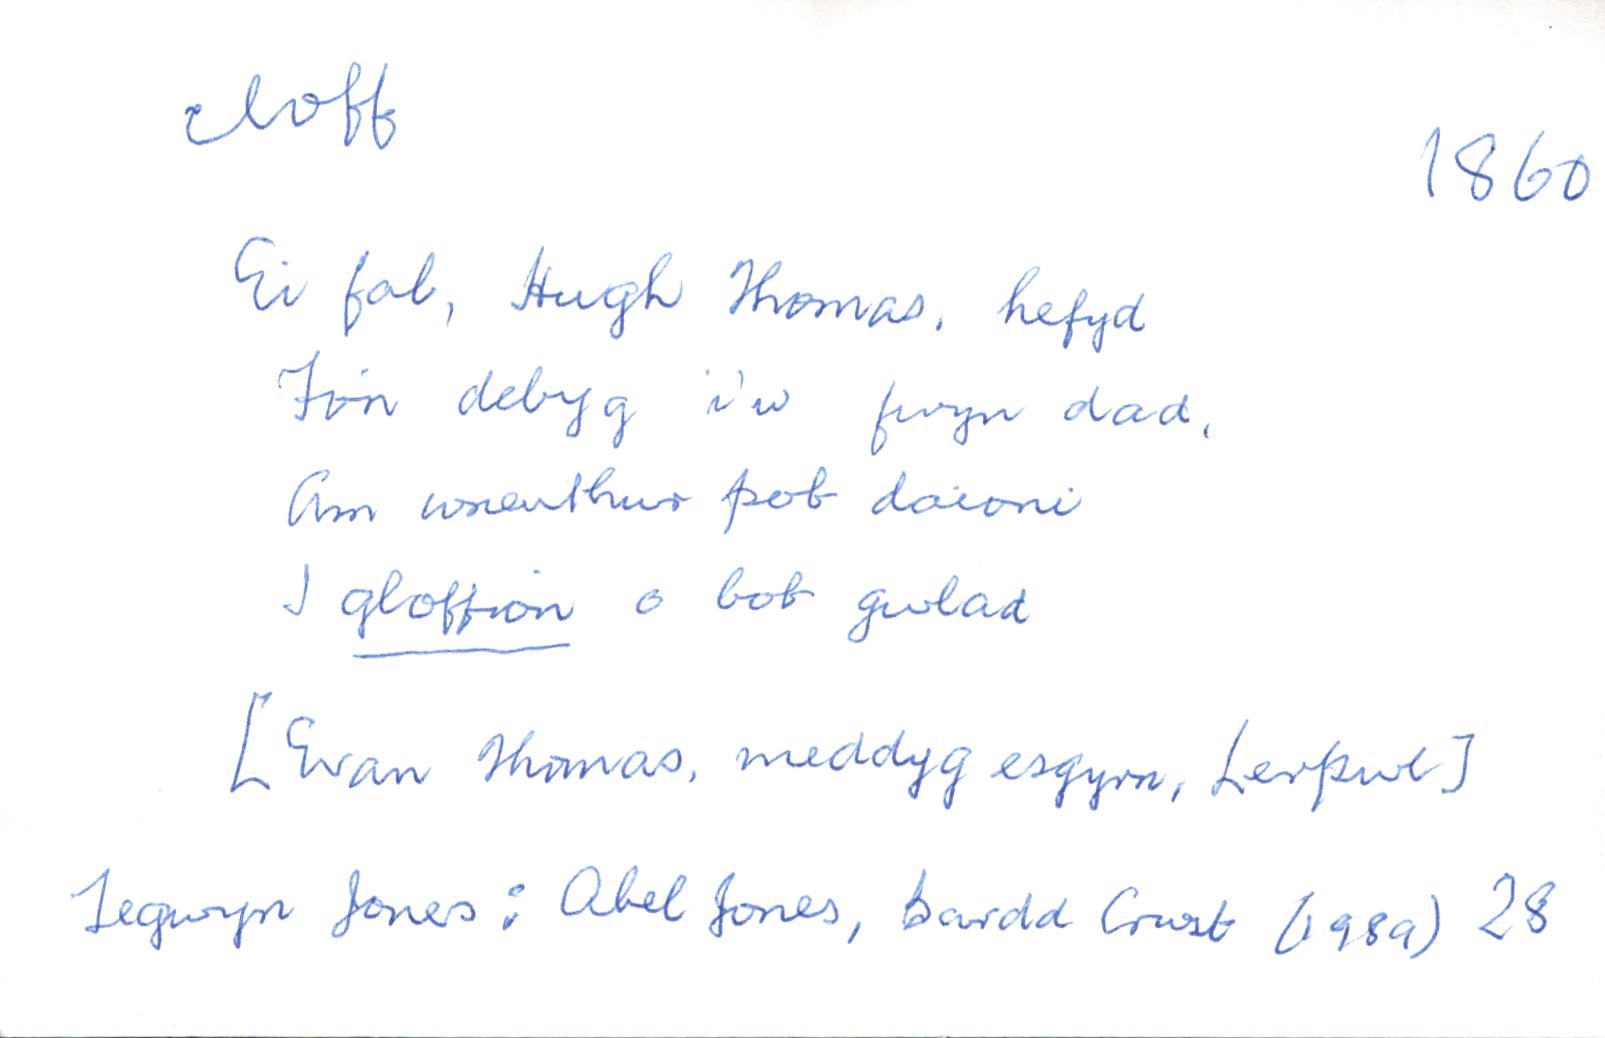 cloff
1860
Ei fab, Hugh Thomas, hefyd
Fo'n debyg i'w fwyn dad,
Am wneuthur pob daioni
I gloffion o bob gwlad
[Evan Thomas, meddyg esgyrn, Lerpwl]
Tegwyn Jones: Abel Jones, Bardd Crwst (1989) 28